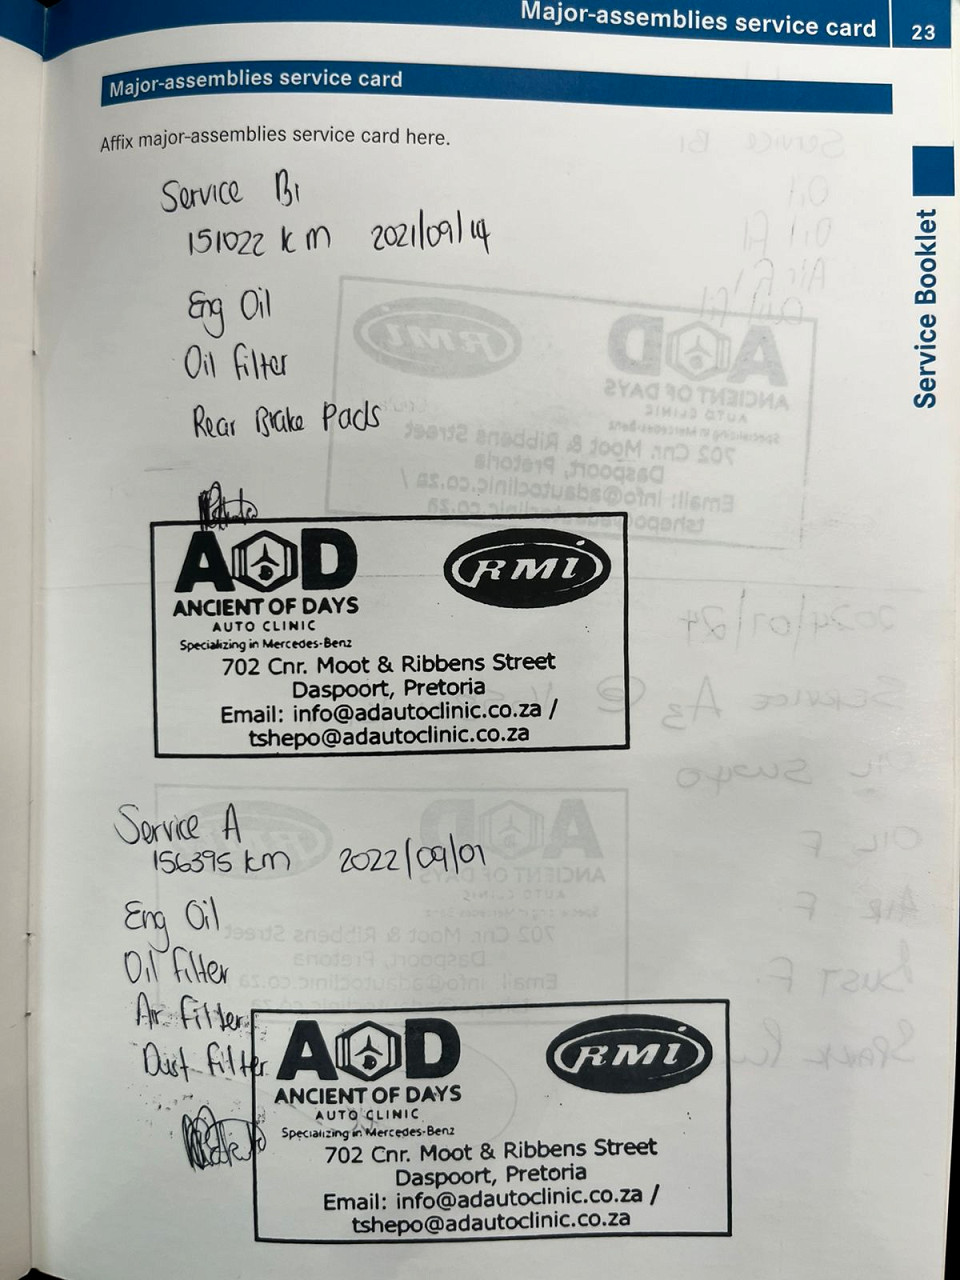 Major-assemblies service card 23
Major-assemblies service card
Affix major-assemblies service card here.
Service Booklet
Service B1
151022 km 2021/09/14
Eng Oil
Oil Filter
Rear Brake Pads
AD
RMI
ANCIENT OF DAYS
AUTO CLINIC
Specializing in Mercedes-Benz
702 Cnr. Moot & Ribbens Street
Daspoort, Pretoria
Email: info@adautoclinic.co.za /
tshepo@adautoclinic.co.za
Service A
156395 km 2022/09/01
Eng Oil
Oil Filter
Air Filter
Dust Filter
AD
RMI
ANCIENT OF DAYS
AUTO CLINIC
Specializing in Mercedes-Benz
702 Cnr. Moot & Ribbens Street
Daspoort, Pretoria
Email: info@adautoclinic.co.za /
tshepo@adautoclinic.co.za